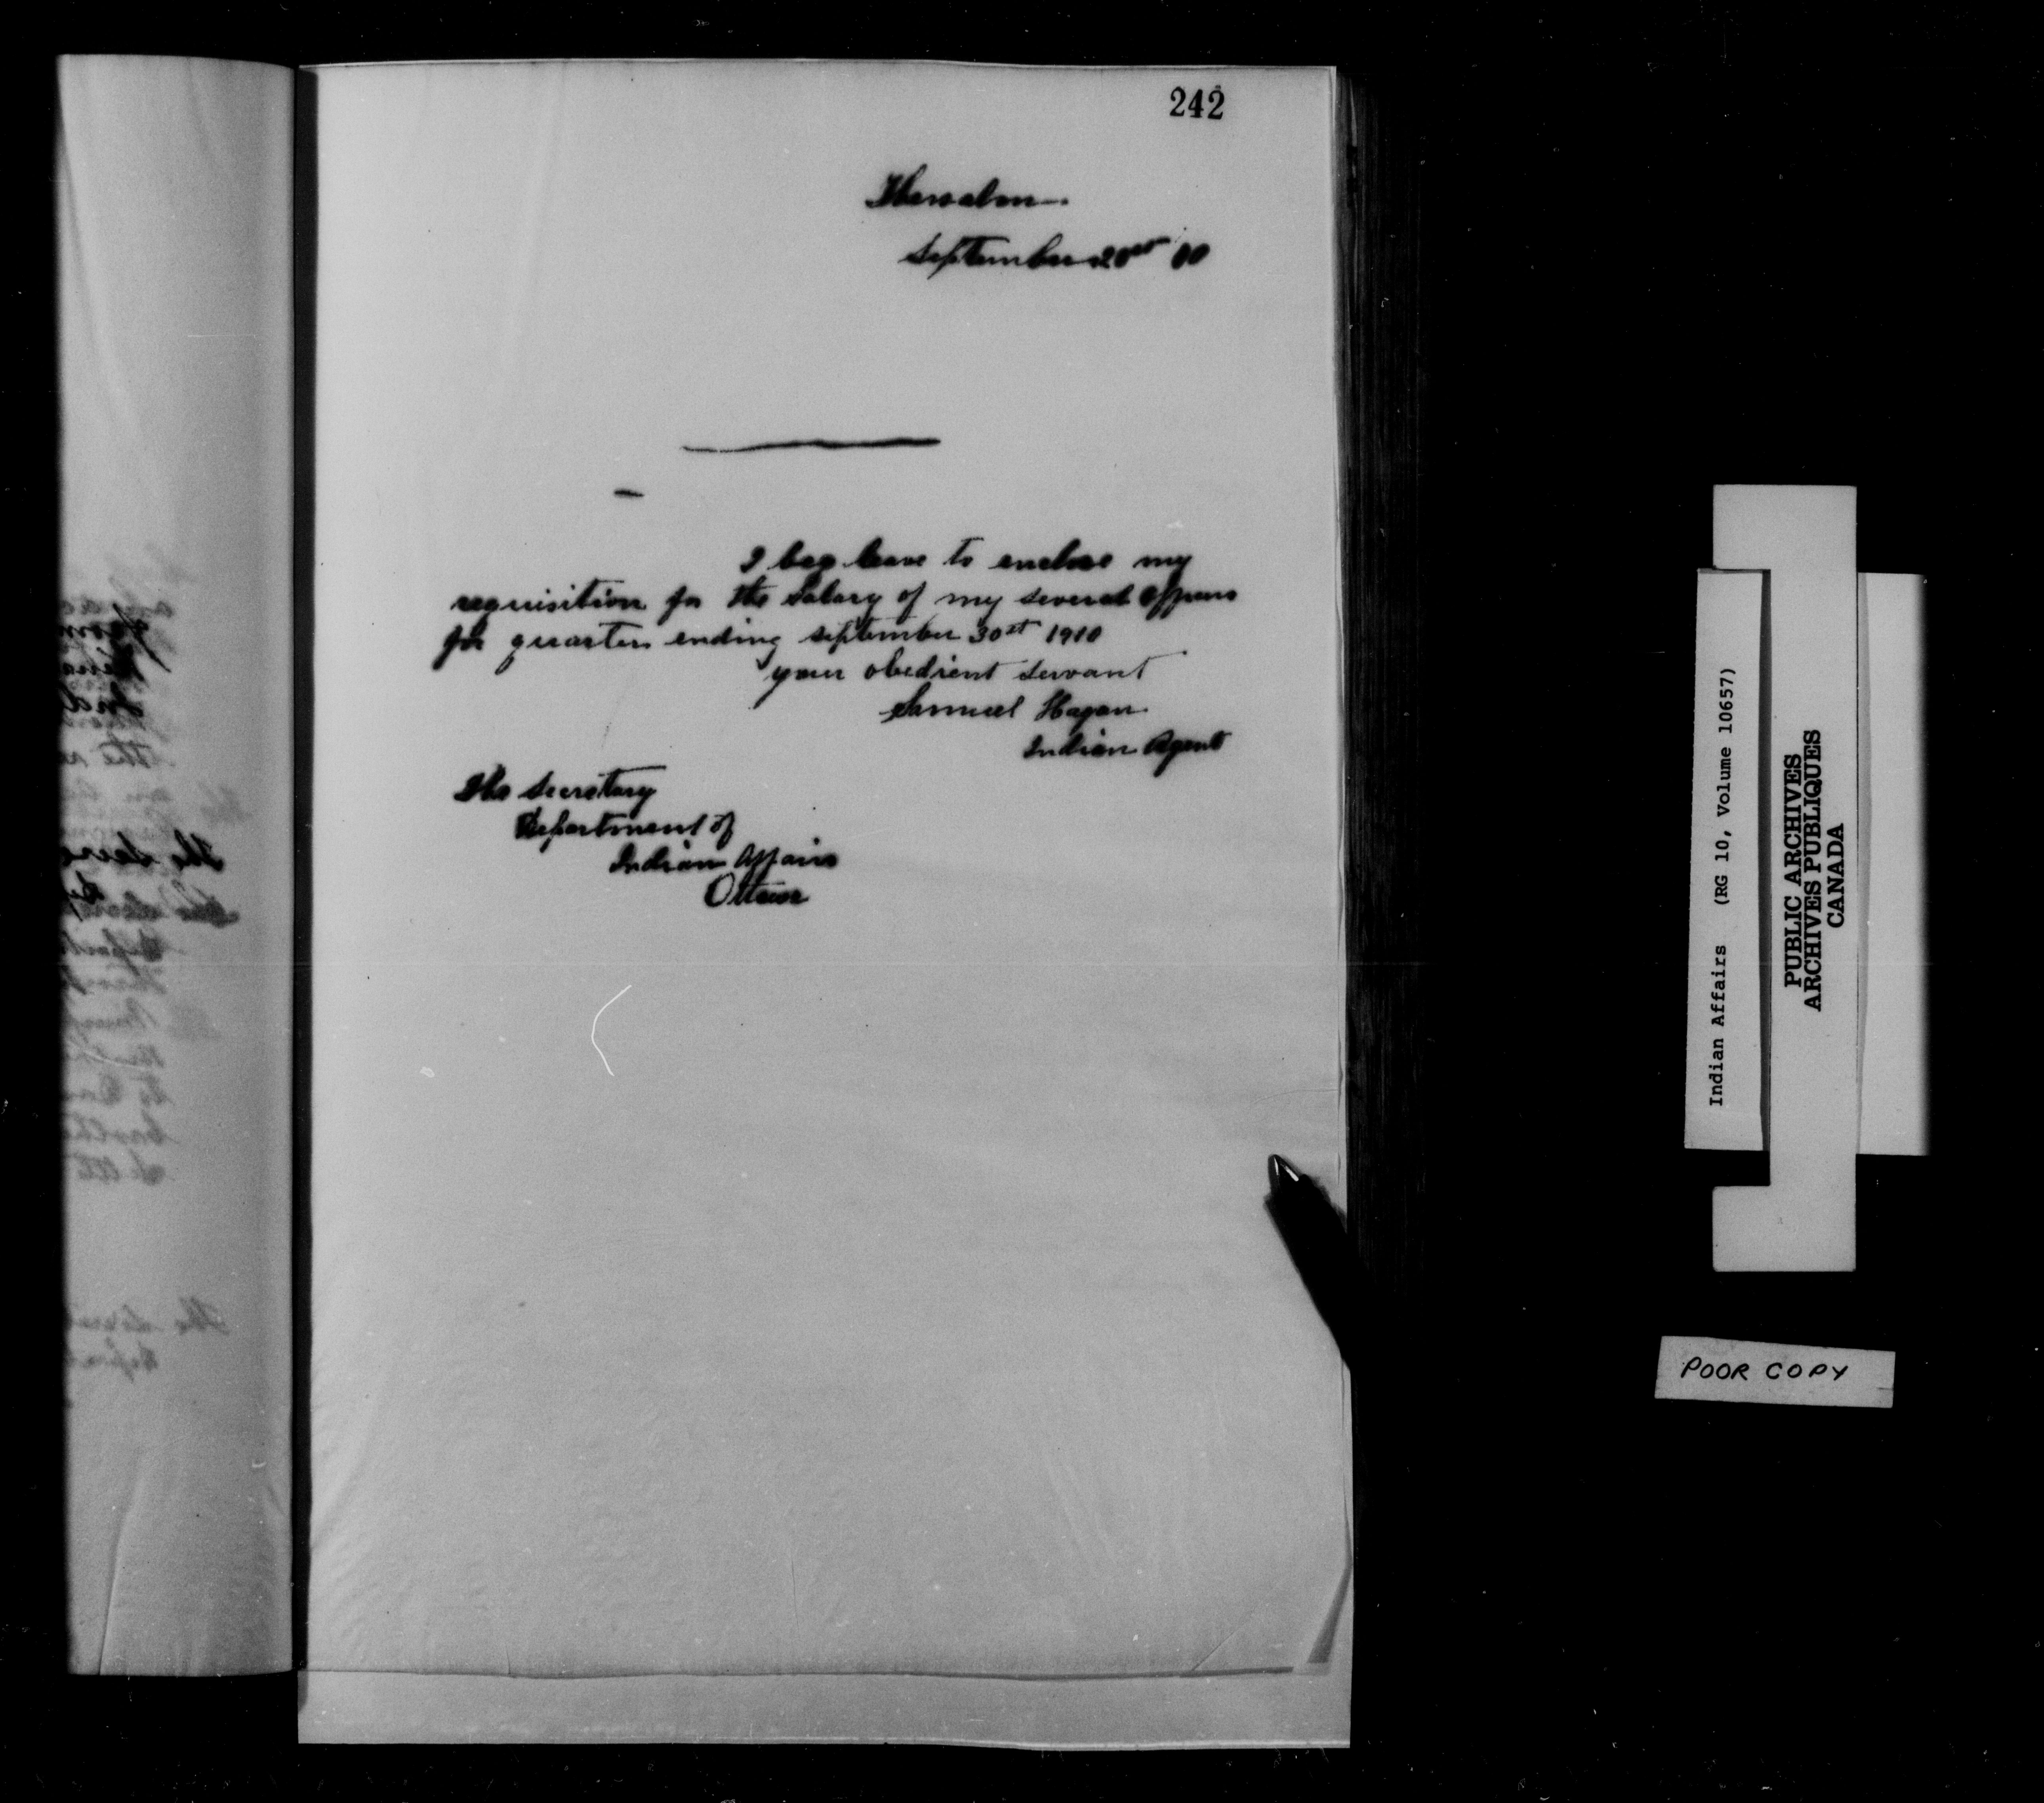 242
Thessalon
September
I beg leave to enclose my
requisition for the Salary of my several
for quarter ending September 30st 1910
your obedient servant
Samuel Hagan
Indian Agent
The Secretary
Department of
Indian Affairs
Ottawa
Indian Affairs (RG 10, Volume 10657)
PUBLIC ARCHIVES
ARCHIVES PUBLIQUES
CANADA
POOR COPY